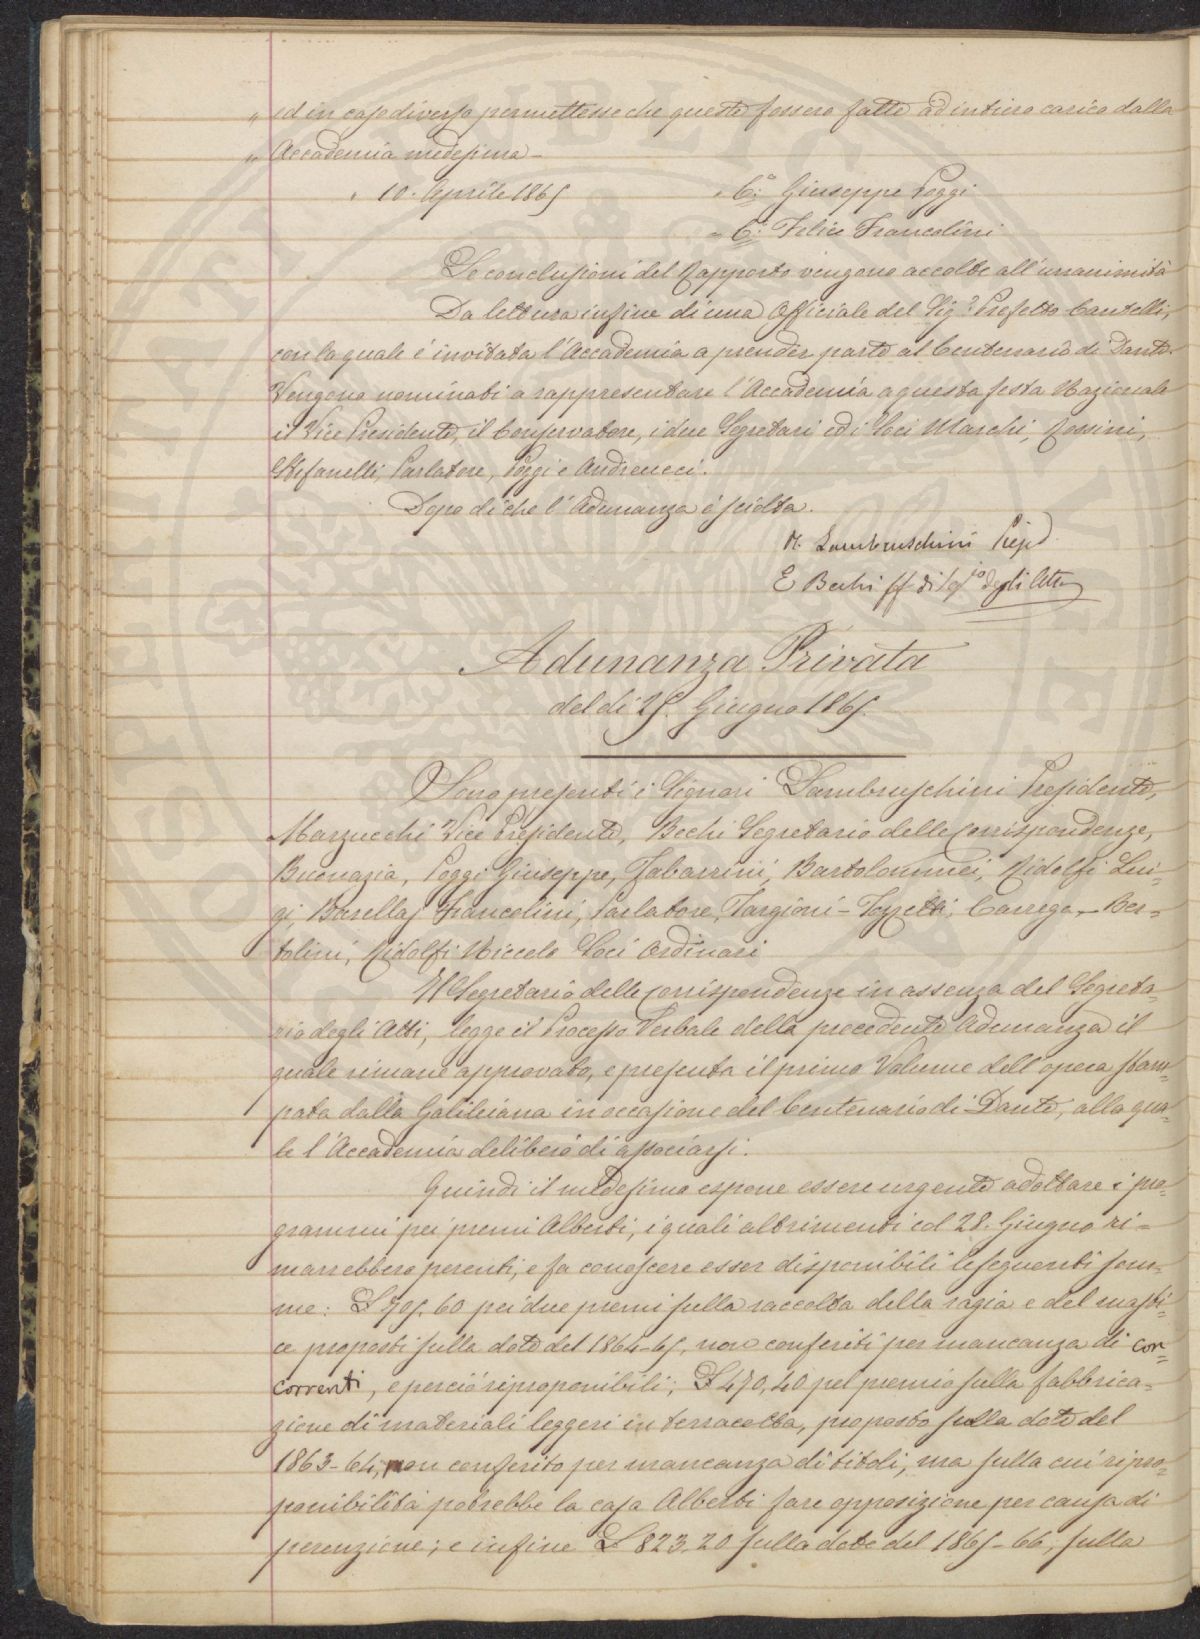 „ ed in caso diverso permettesse che queste fossero fatte ad intiero carico dalla
„ Accademia medesima –
„ 10. Aprile 1865 „ C.º Giuseppe Poggi
„ C.º Felice Francolini
Le conclusioni del Rapporto vengono accolte all'unanimità
Da lettura infine di una Officiale del Sigr Prefetto Cantelli,
con la quale é invitata l'Accademia a prender parte al Centenario di Dante.
Vengono nominati a rappresentare l'Accademia a questa festa Nazionale
il Vice Presidente, il Conservatore, i due Segretari ed i Soci Marchi, Rossini,
Stefanelli, Parlatore, Poggi e Andreucci.
Dopo di che l'Adunanza é sciolta.
R. Lambruschini Presd.
E Bechi ff di Segio degli Atti
Adunanza Privata
del di 25. Giugno 1865.
Sono presenti i Signori Lambruschini Presidente,
Marzucchi Vice Presidente, Bechi Segretario delle Corrispondenze,
Buonazia, Poggi Giuseppe, Tabarrini, Bartolommei, Ridolfi Lui=
gi, Barellaj Francolini, Parlatore, Targioni-Tozzetti, Carrega, Ber=
tolini, Ridolfi Niccolo Soci Ordinari
Il Segretario delle Corrispondenze in assenza del Segreta=
rio degli Atti, legge il Processo Verbale della precedente Adunanza il
quale rimane approvato, e presenta il primo Volume dell'opera stam=
pata dalla Galileiana in occasione del Centenario di Dante, alla qua=
le l'Accademia deliberò di associarsi.
Quindi il medesimo espone essere urgente adottare i pro=
grammi pei premi Alberti, i quali altrimenti col 28. Giugno ri=
marrebbero perenti, e fa conoscere esser disponibili le seguenti som=
me: L 705. 60 pei due premi sulla raccolta della ragia e del masti=
ce proposti sulla dote del 1864-65, non conferiti per mancanza di con=
correnti, e perció riproponibili; L 470,40 pel premio sulla fabbrica=
zione di materiali leggeri in terracotta, proposto sulla dote del
1863-64, non conferito per mancanza di titoli, ma sulla cui ripro=
ponibilità potrebbe la casa Alberti fare opposizione per causa di
perenzione; e infine L 823. 20 sulla dote del 1865-66, sulla